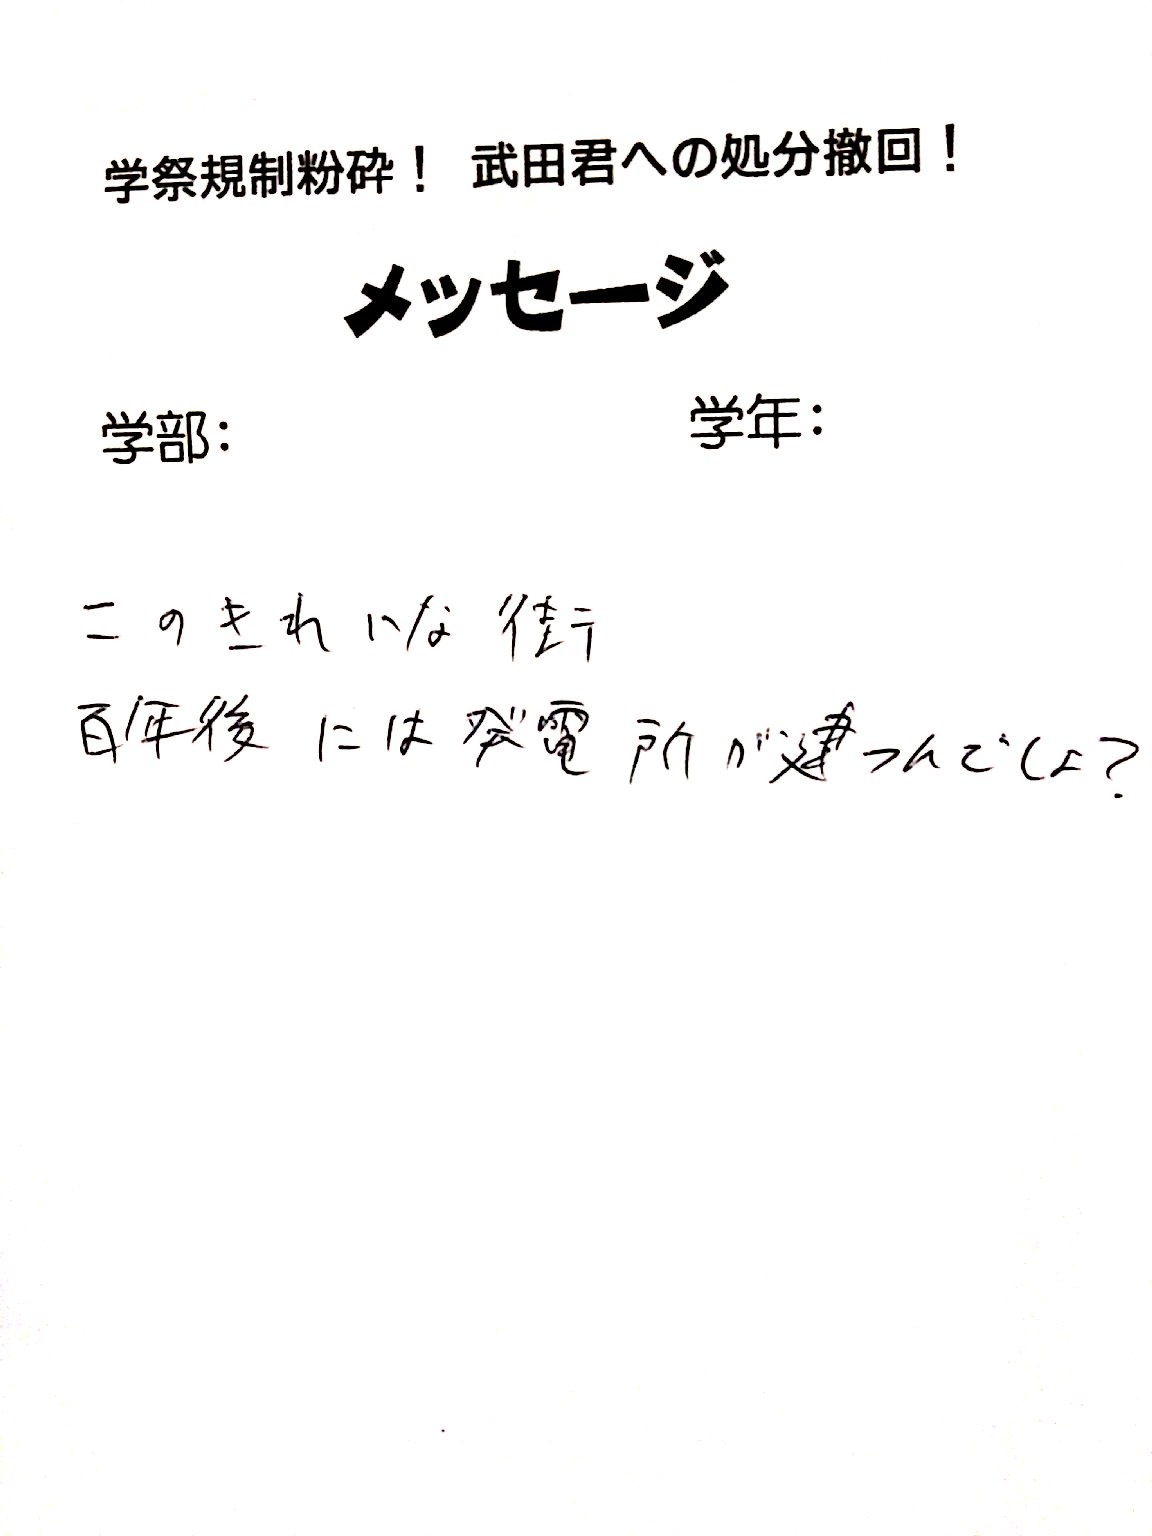 学祭規制粉砕！ 武田君への処分撤回！
メッセージ
学部： 学年：
このきれいな街
百年後には発電所が建つんでしょ？